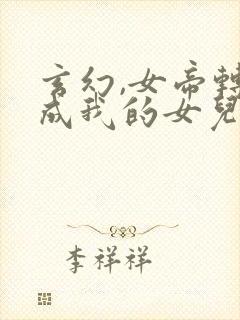 玄幻,女帝轉
成我的女兒
李祥祥